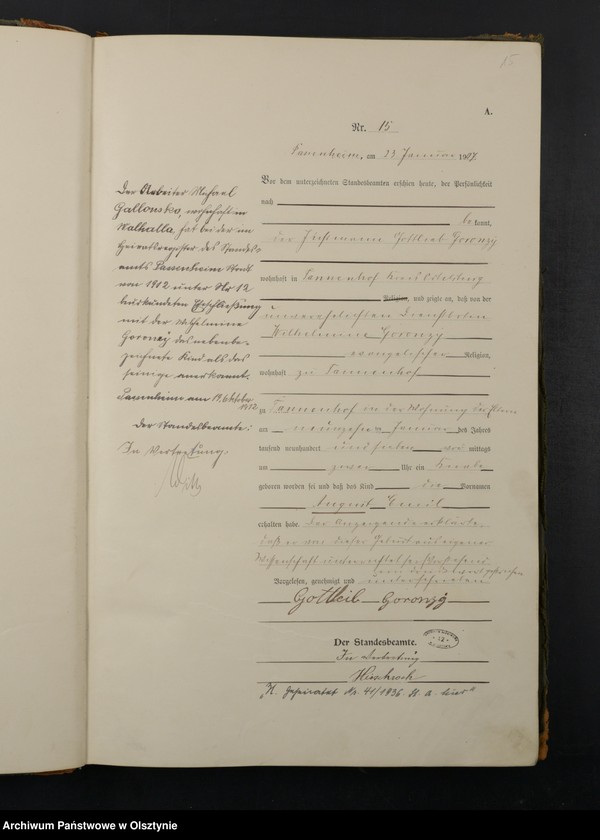 15
A.
Nr. 15
Passenheim, am 23 Januar 1907
Vor dem unterzeichneten Standesbeamten erschien heute, der Persönlichkeit
nach
be kannt,
der Gottlieb Goronzy
wohnhaft in Tannenhof Kreis Ortelsburg
Religion, und zeigte an, daß von der
unverehelichten
Wilhelmine Goronzy
evangelischer Religion,
wohnhaft zu Tannenhof
zu Tannenhof in der Wohnung der Eltern
am neunzehnten Januar des Jahres
tausend neunhundert und sieben vor mittags
um zwei Uhr ein Knabe
geboren worden sei und daß das Kind die Vornamen
August Emil
erhalten habe. Der Anzeigende erklärte,
daß er von dieser Geburt aus eigener
Wissenschaft unterrichtet sei.
Vorgelesen, genehmigt und unterschrieben
Gottleib Goronzy
Der Standesbeamte.
In Vertretung
Der Arbeiter Michael
Gallonska, wohnhaft in
Walhalla, hat bei der im
Heiratsregister des Standes-
amts Passenheim Stadt
von 1912 unter Nr 12
beurkundeten Eheschließung
mit der Wilhelmine
Goronzy das nebenbe-
zeichnete Kind als das
seinige anerkannt.
Passenheim am 19. Oktober
1912
Der Standesbeamte:
In Vertretung.
Nr. 41/1936
Archiwum Państwowe w Olsztynie